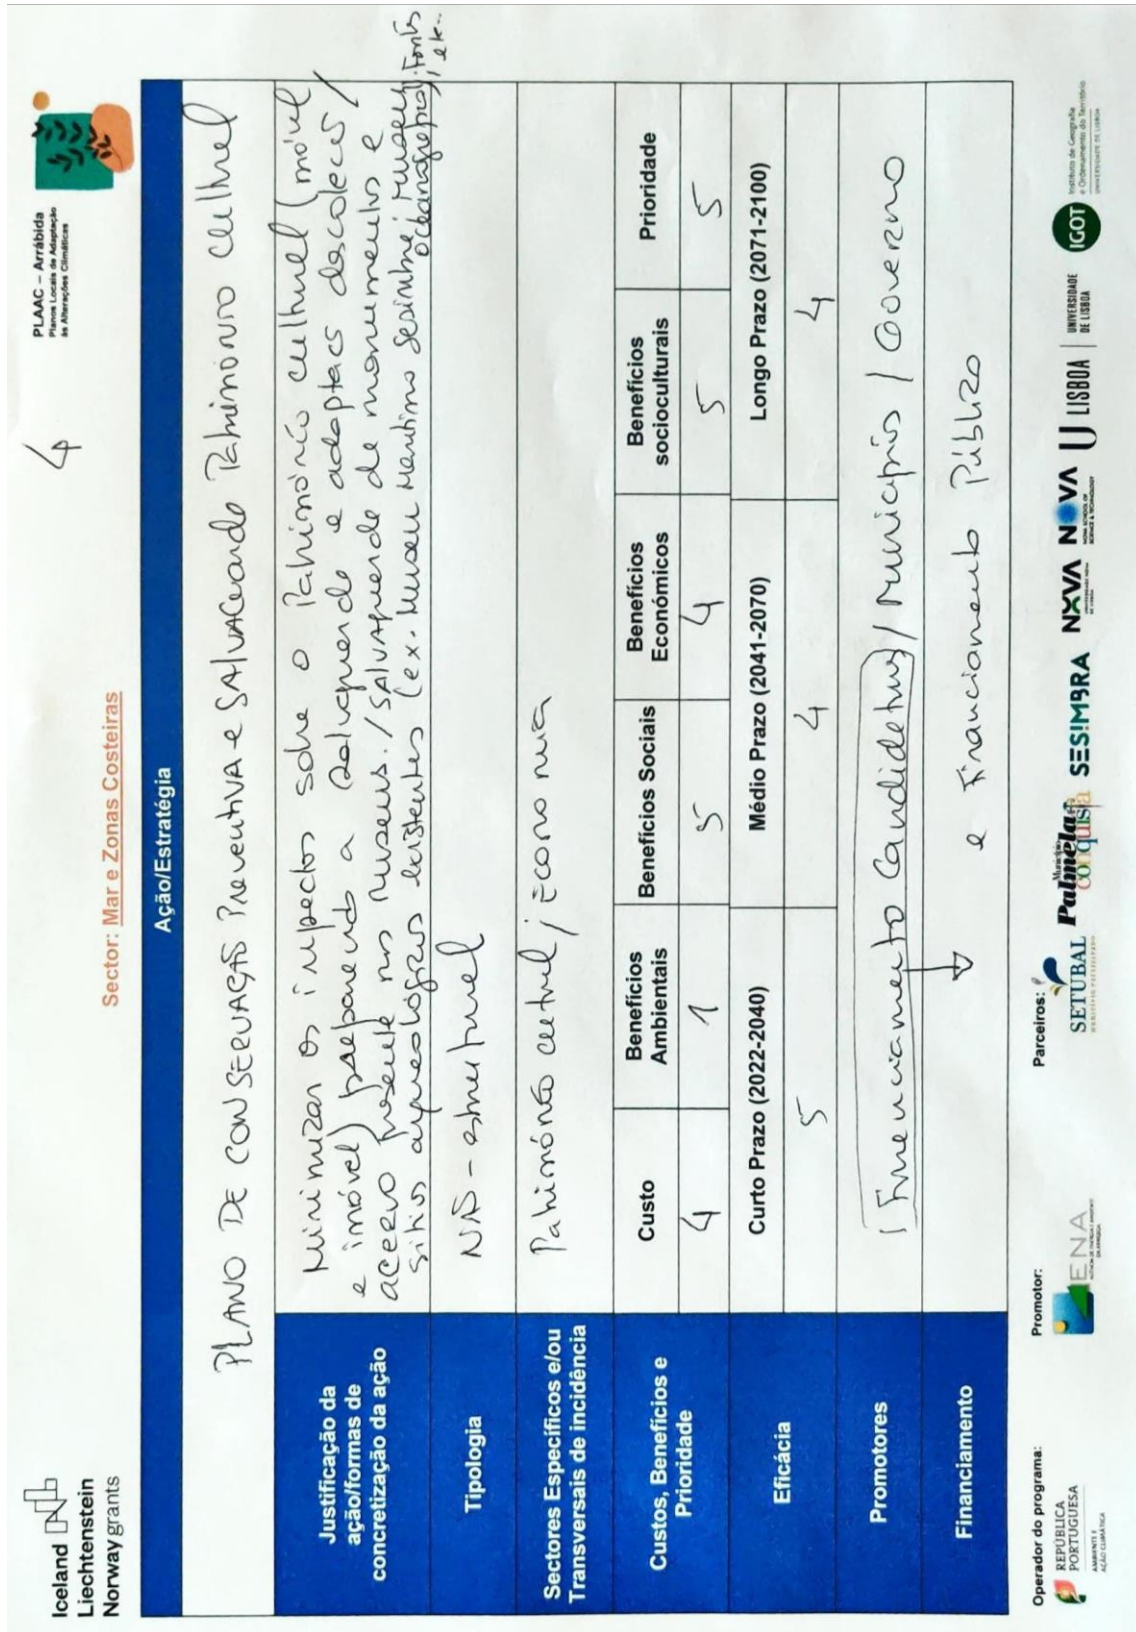 Iceland
Liechtenstein
Norway grants
4
PLAAC – Arrábida
Planos Locais de Adaptação
às Alterações Climáticas
Sector: Mar e Zonas Costeiras
Ação/Estratégia
PLANO DE CONSERVAÇÃO PREVENTIVA e SALVAGUARDA Património Cultural
Justificação da
ação/formas de
concretização da ação
Minimizar os impactos sobre o Património cultural (móvel
e imóvel) preparando a salvaguarda e adaptação das coleções /
acervo presente nos museus. / Salvaguarda de monumentos e
sítios arqueológicos existentes (ex. Museu Marítimo Sesimbra, Museu
oceanográfico), Fortes, etc..
Tipologia
Não - estrutural
Sectores Específicos e/ou
Transversais de incidência
Património cultural ; Economia
Custos, Benefícios e
Prioridade
Custo
Benefícios
Ambientais
Benefícios Sociais
Benefícios
Económicos
Benefícios
socioculturais
Prioridade
4 1 5 4 5 5
Eficácia
Curto Prazo (2022-2040)
Médio Prazo (2041-2070)
Longo Prazo (2071-2100)
5 4 4
Promotores
Financiamento Candidaturas / Municípios / Governo
Financiamento
e Financiamento Público
Operador do programa:
REPÚBLICA
PORTUGUESA
AMBIENTE E
AÇÃO CLIMÁTICA
Promotor:
ENA
Parceiros:
SETÚBAL
Município
Palmela
conquista
SES!MBRA
NOVA
NOVA
NOVA SCHOOL OF
SCIENCE & TECHNOLOGY
U LISBOA
UNIVERSIDADE
DE LISBOA
IGOT
Instituto de Geografia
e Ordenamento do Território
UNIVERSIDADE DE LISBOA